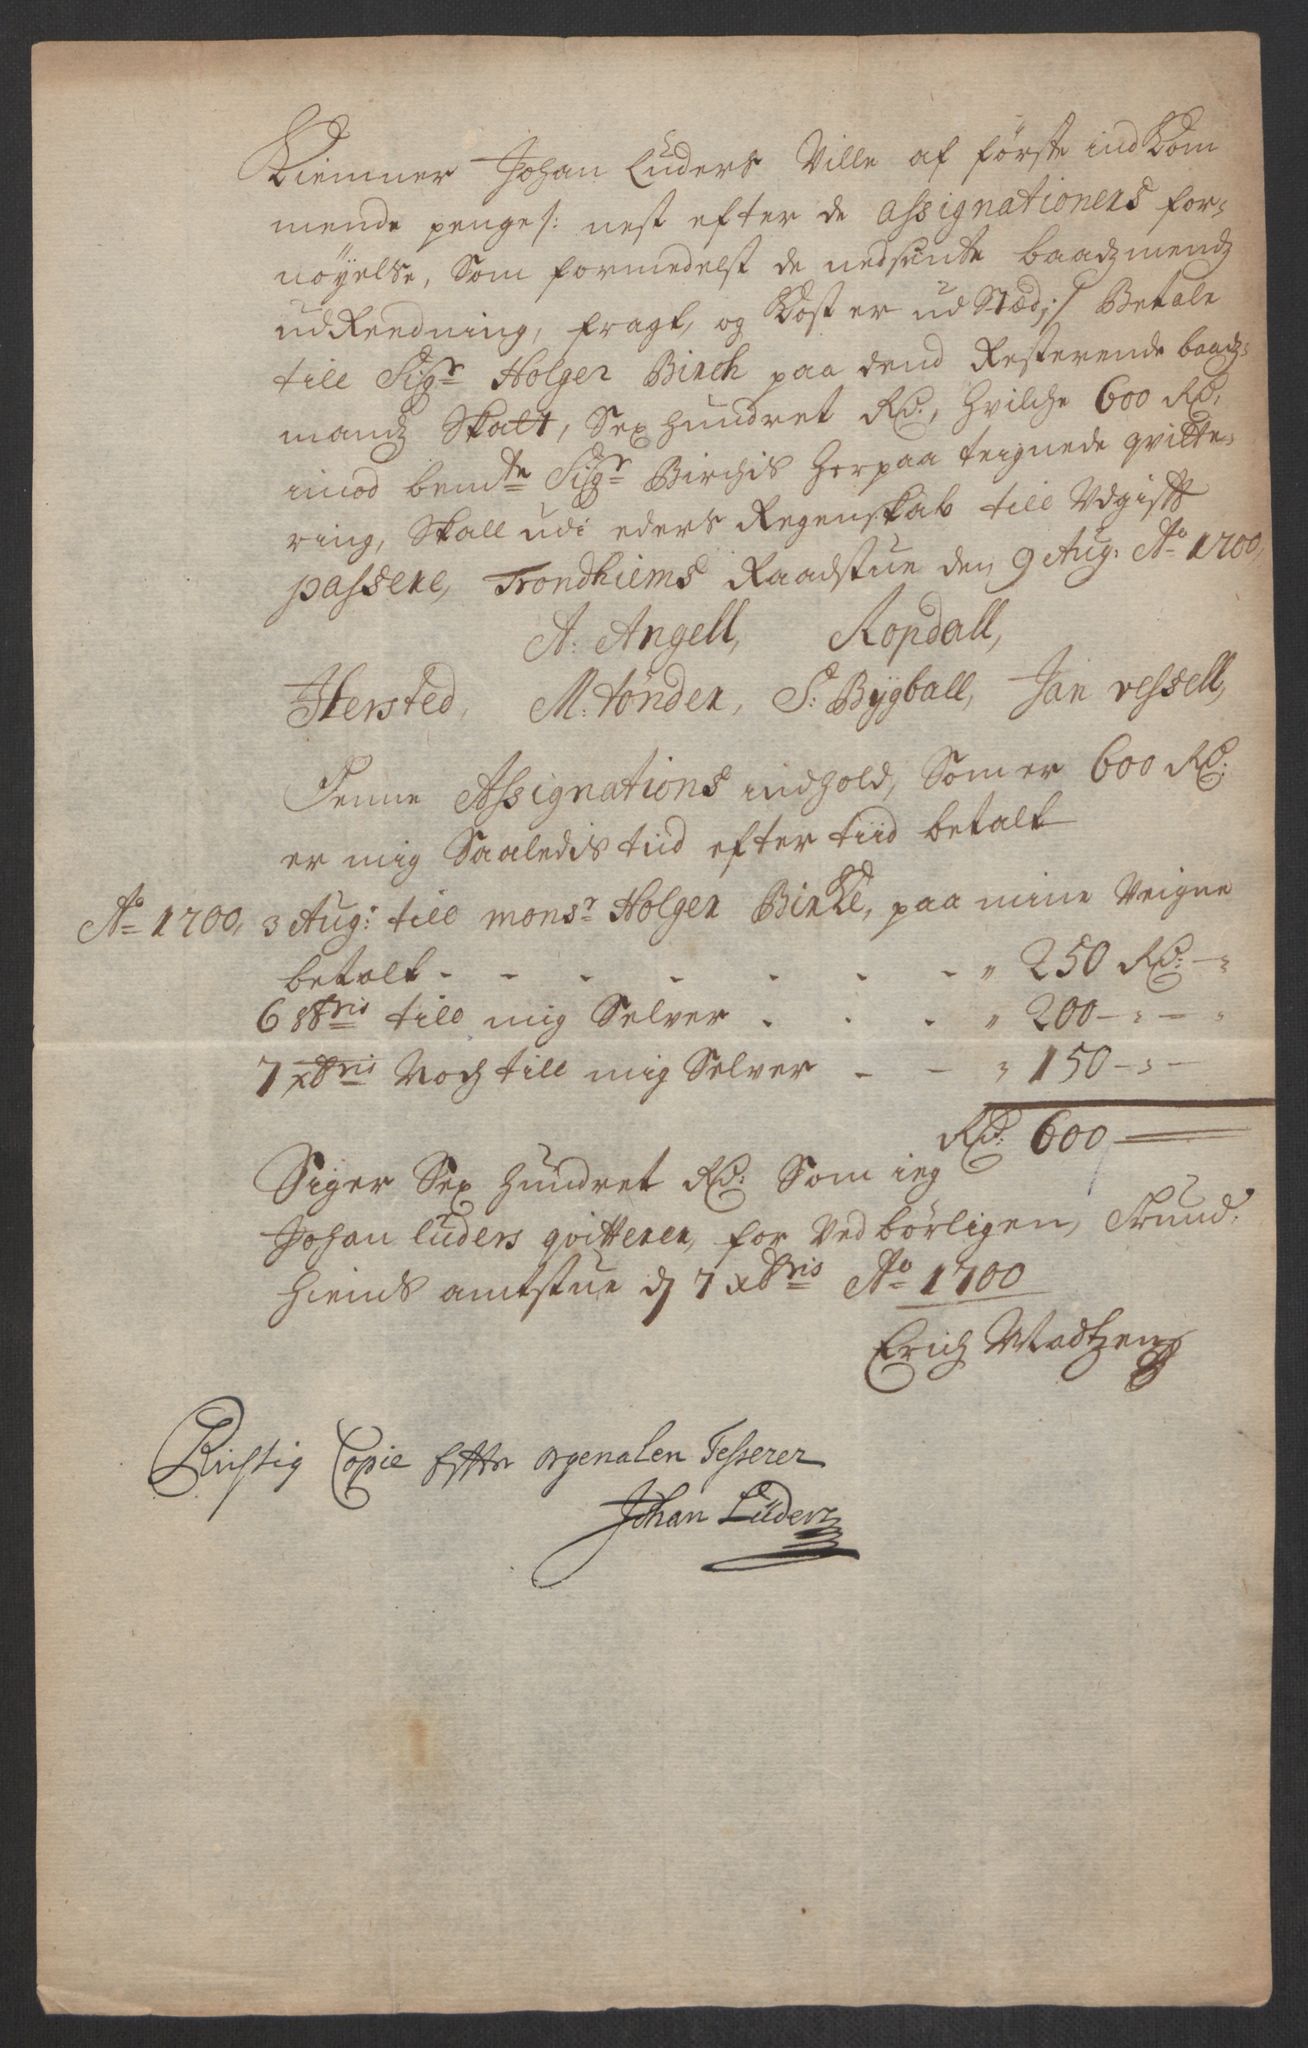 Kiemner Johan Luders Ville af förste ind Kom
mende penge /: nest efter de assignationers for-
nöyelse, Som formedelst de nedsente baadzmendz
udReedning, fragt, og Kost er ud Stæd :/ Betale
till Sigr Holger Birch paa dend Resterende baadz-
mandz Skatt, Sex hundret Rd., hvilche 600 Rd,
imod bemte Sigr Birchis herpaa teignede qvitte-
ring, Skall udi eders Regenskab till Vdgifft
passere, Trondhiems Raadstue den 9 Aug: Ao 1700,
A: Angell, Ropdall,
Hersted, M: tönder, S: Bÿgball, Jan vessell,
Denne Assignations indhold, Som er 600 Rd:
er mig Saaledis tiid efter tiid betalt
Ao 1700, 3 Aug: till monsr Holger Birke, paa mine Veigne
betalt - - - - - - - " 250 Rd: - "
6 8bris till mig Selver . . . " 200 - " - "
7 xbris Noch till mig Selver - - " 150 - " -
Rd: 600
Siger Sex hundret Rd: Som ieg
Johan luders qvitterer, for Vedbörligen, Trund-
hiems amtstue d 7 xbris Ao 1700
Erich Madtzen
Richtig Copie Effter orgenalen Testerer
Johan Lüders